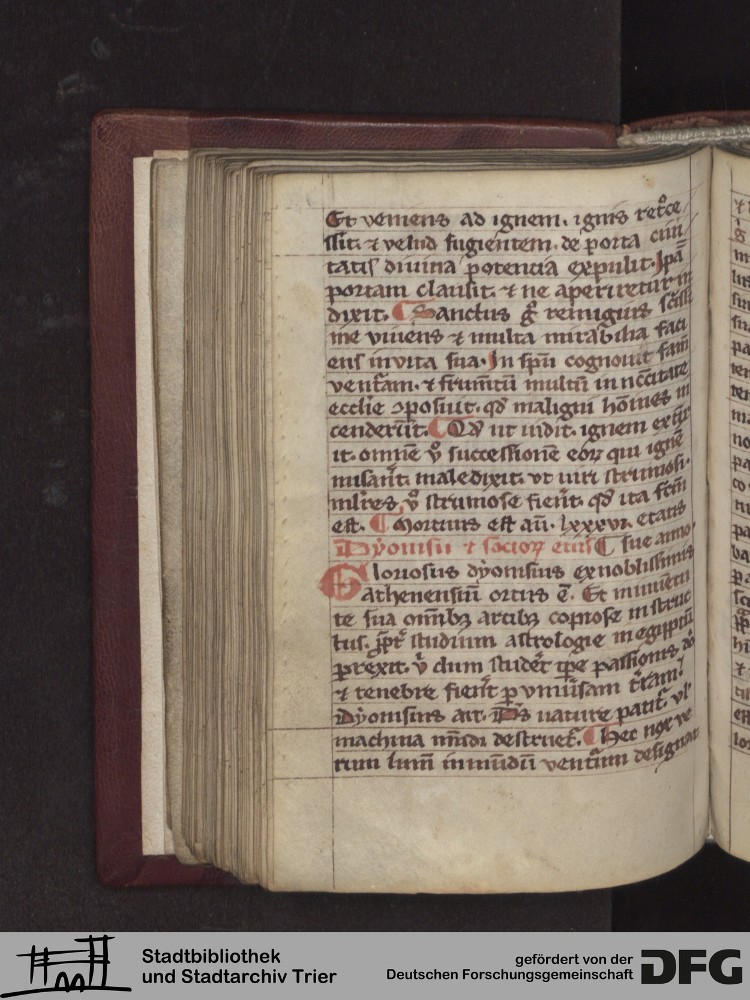 Et veniens ad ignem. ignis ret͛oce
ssit. ⁊ velud fugientem. de porta ciui
tatis diuina potencia expulit. Ip̄a
portam clausit. ⁊ ne aperiretur in
dixit. ¶ Sanctus g͛ remigius sc̄issi
me viuens ⁊ multa mirabilia faci
ens in vita sua. In sp̄u cognouit fam̄
vent͛am. ⁊ frum̄tū multū in nc̄citate
ecclīe ꝯposuit. qd̓ maligni hōines in
cenderūt. ¶ Qd̓ ut uidit. ignem
it. omnē v͛o successionē eoꝝ qui ignē
misant͛. maledixit. vt uiri strumosi.
ml̓ires v͛o strumose fient͛. qd̓ ita fc̄m
est. ¶ Mortuus est an̄. lxxxvi. etatis
Dyonisii ⁊ socioꝝ eius ¶ sue anno.
Gloriosus dyonisius ex noblissimis
athenensiū ortus ē. Et in iuuētu
te sua om̄ibꝫ artibꝫ copiose instruc
tus. ꝓpt͛ studium astrologie in egipptū
ꝑrexit. v̓ dum studet͛ tꝑe passionis do͛
⁊ tenebre fient͛ ꝑ vniu͛sam t͛ram.
dyonisius ait. D̄s nature patit͛. vl̓
machina mūdi destruet͛. ¶ Hec nox ve
rum lum̄ in mūdū vent͛um designat
Stadtbibliothek
und Stadtarchiv Trier
gefördert von der
Deutschen Forschungsgemeinschaft
DFG